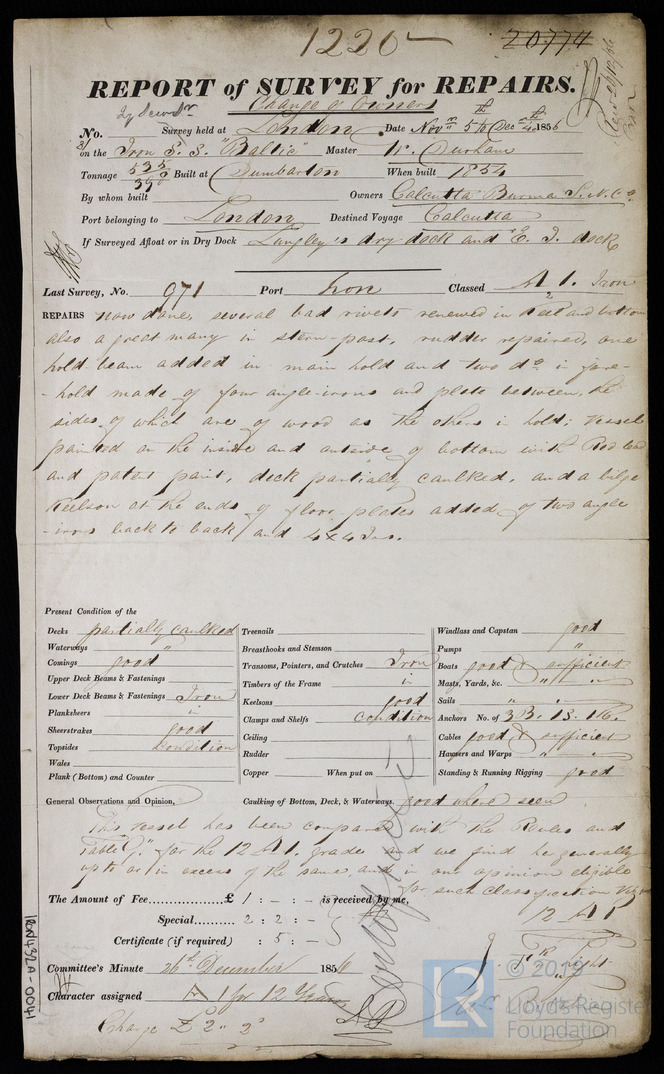 1220
20774
REPORT of SURVEY for REPAIRS.
Change of Owners
No. Survey held at London Date Novr 5th to Decr 4th 1856
on the Iron S. S. "Baltic" Master W. Durham
Tonnage 535 Built at Dumbarton When built 1854
By whom built Owners Calcutta Burma S. N. Co.
Port belonging to London Destined Voyage Calcutta
If Surveyed Afloat or in Dry Dock Langley's dry dock and E. I. dock
Last Survey, No. 971 Port Lon Classed A 1. Iron
REPAIRS now done, several bad rivets renewed in Keel and bottom
also a great many in stern-post, rudder repaired, one
hold-beam added in main hold and two do. in fore-
-hold made of four angle-irons and plate between, the
sides of which are of wood as the others in hold; Vessel
painted on the inside and outside of bottom with Red lead
and patent paint, deck partially caulked, and a bilge
Keelson at the ends of floor plates added of two angle
-irons back to back, and 4 x 4 Ins.
Present Condition of the
Decks partially caulked
Waterways "
Comings good
Upper Deck Beams & Fastenings
Lower Deck Beams & Fastenings Iron
Planksheers in
Sheerstrakes good
Topsides condition
Wales
Plank (Bottom) and Counter
Treenails
Breasthooks and Stemson
Transoms, Pointers, and Crutches Iron
Timbers of the Frame in
Keelsons good
Clamps and Shelfs condition
Ceiling
Rudder
Copper When put on
Windlass and Capstan good
Pumps "
Boats good & sufficient
Masts, Yards, &c. " "
Sails " "
Anchors No. of 3 B. 1 S. 1 K.
Cables good & sufficient
Hawsers and Warps " "
Standing & Running Rigging good
General Observations and Opinion, Caulking of Bottom, Deck, & Waterways. good where seen
This vessel has been compared with the Rules and
Table "G." for the 12 A 1. grade and we find her generally
up to or in excess of the same, and in our opinion eligible
for such classification
12 A 1
The Amount of Fee £ 1 : - : - is received by me,
Special 2 : 2 : -
Certificate (if required) : 5 : -
Committee's Minute 26th December 1856
Character assigned A 1 for 12 Years
Charge £ 2 " 2
IRON432A-0041
© 2019
Lloyd's Register
Foundation